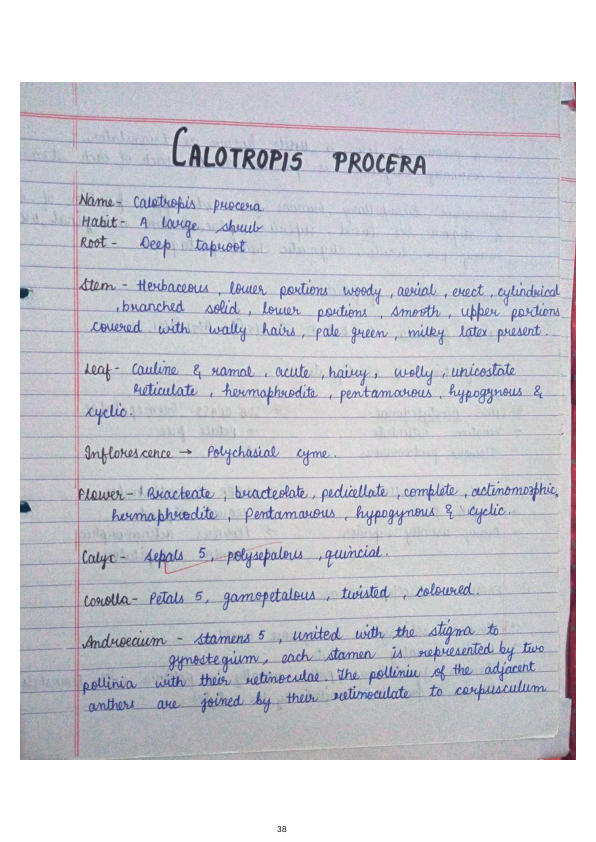 CALOTROPIS PROCERA
Name - Calotropis procera
Habit - A large shrub
Root - Deep taproot
Stem - Herbaceous, lower portions woody, aerial, erect, cylindrical
,branched solid, lower portions, smooth, upper portions
covered with wally hairs, pale green, milky latex present.
Leaf - Cauline & ramal, acute, hairy, wolly, unicostate
reticulate, hermaphrodite, pentamarous, hypogynous &
cyclic.
Inflorescence → Polychasial cyme.
Flower - Bracteate, bracteolate, pedicellate, complete, actinomorphic,
hermaphrodite, Pentamarous, hypogynous & cyclic.
Calyx - Sepals 5, polysepalous, quincial.
Corolla - Petals 5, gamopetalous, twisted, coloured.
Androecium - Stamens 5, united with the stigma to
gynostegium, each stamen is represented by two
pollinia with their retinoculae. The polliniu of the adjacent
anthers are joined by their retinoculate to corpusculum
38